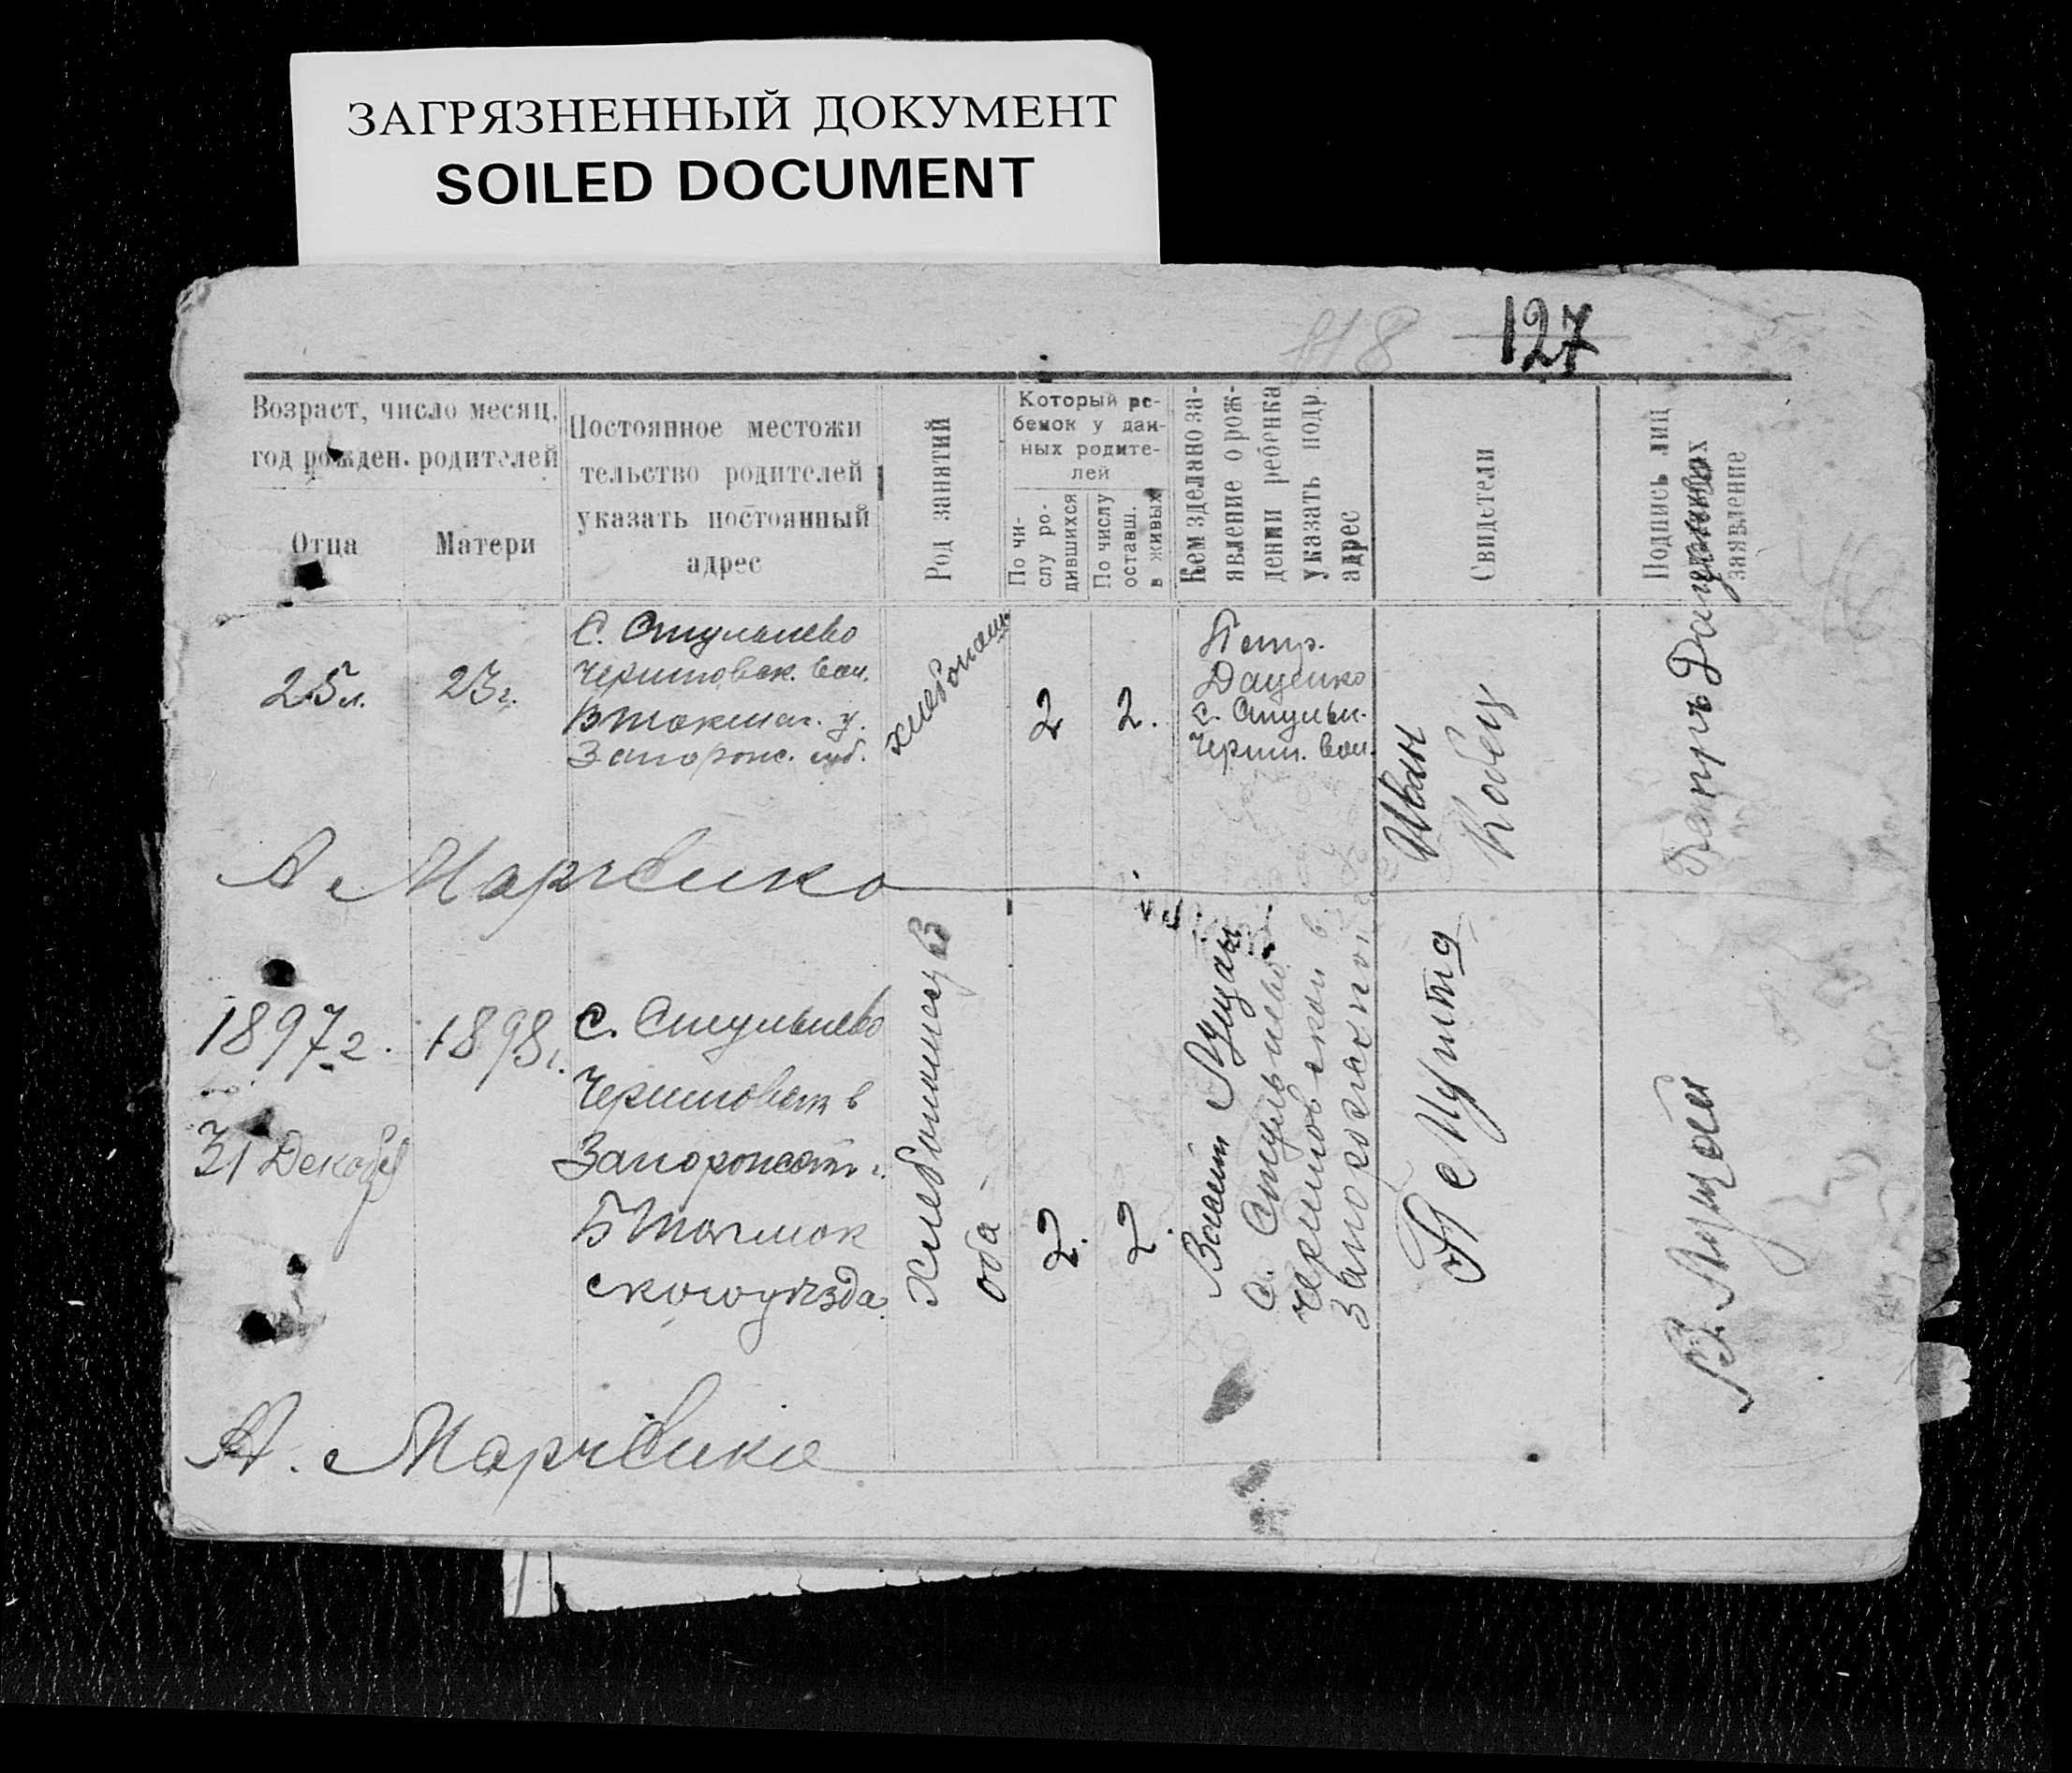 ЗАГРЯЗНЕННЫЙ ДОКУМЕНТ
SOILED DOCUMENT
118 127
Возраст, число месяц.
год рожден. родителей
Отца
Матери
Постоянное местожи
тельство родителей
указать постоянный
адрес
Род занятий
Который ре-
бенок у дан-
ных родите-
лей
По чи-
слу ро-
дившихся
По числу
оставш.
в живых
Кем зделано за-
явление о рож-
дении ребенка
указать подр.
адрес
Свидетели
Подпись лиц
заявление
25 л.
23 г.
С. Стульнево
Черниговск. вол.
Б Токмак. у.
Запорож. губ.
хлебопаш
2
2.
Петр.
Даценко
с. Стульн.
Черниг. вол.
Иван
Кобец
Петръ Даценко
А Марченко
1897 г.
31 Декабря
1898 г.
с. Стульнево
Черниговск в
Запорожск г.
Б Токмок
ского уезда
Хлебопашество
оба
2.
2.
с. Стульнево
Черниговской в
Запорожской г
В. Луцай
А. Марченко